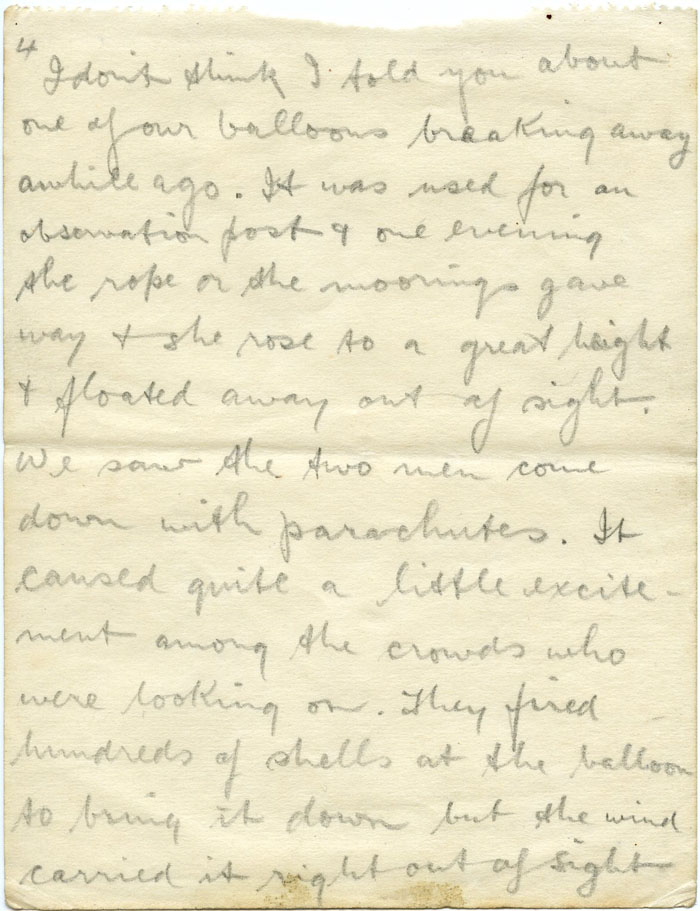 4
I don't think I told you about
one of our balloons breaking away
awhile ago. It was used for an
observation post & one evening
the rope or the moorings gave
way & she rose to a great height
& floated away out of sight.
We saw the two men come
down with parachutes. It
caused quite a little excite-
ment among the crowds who
were looking on. They fired
hundreds of shells at the balloon
to bring it down but the wind
carried it right out of sight